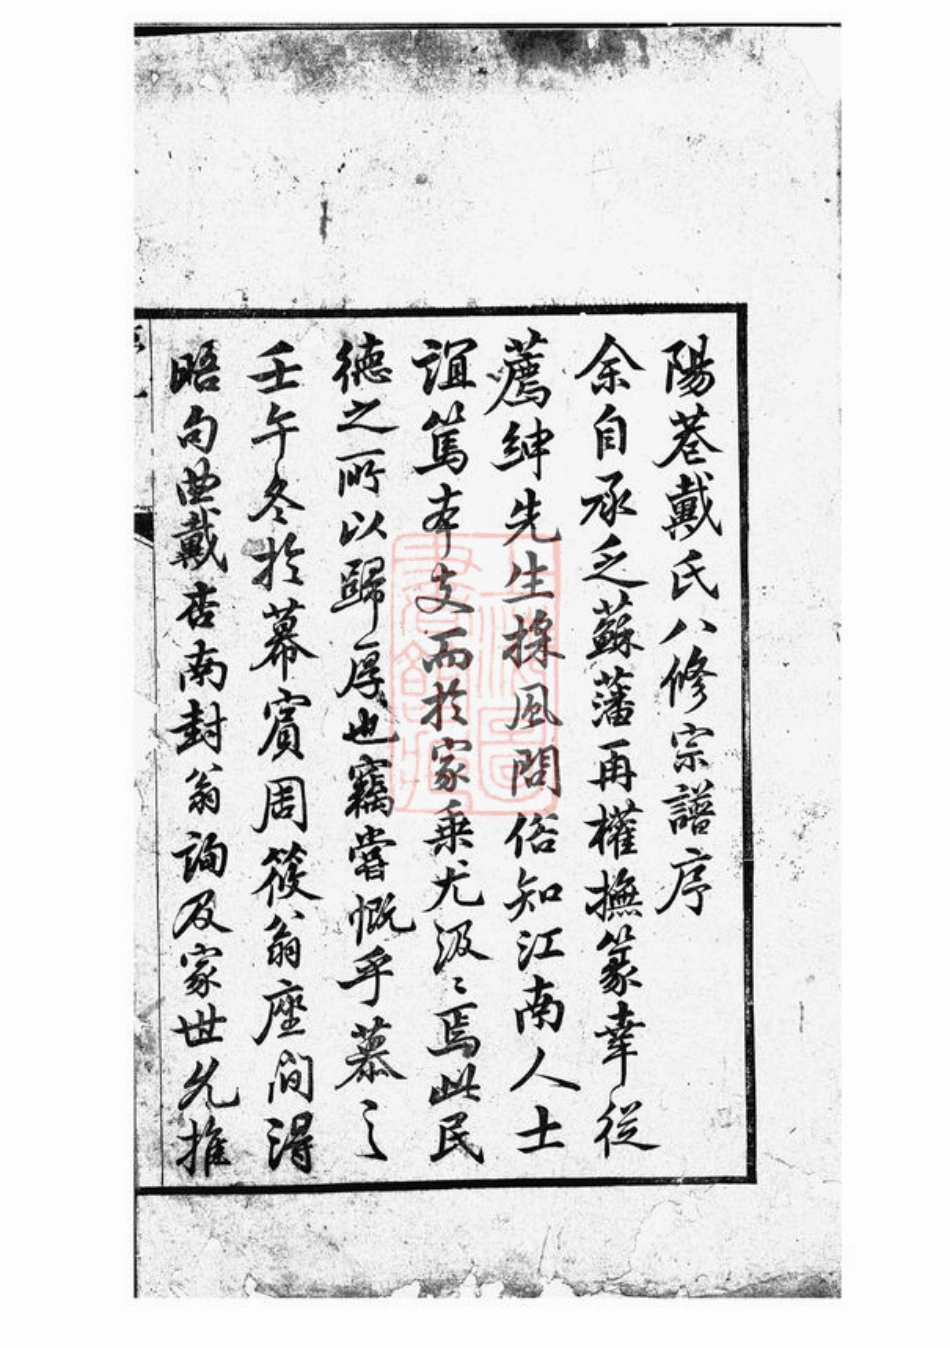 陽巷戴氏八修宗譜序
余自承乏蘇藩再權撫篆幸從
薦紳先生採風問俗知江南人士
誼篤本支而於家乗尤汲〻焉此民
德之所以歸厚也竊嘗慨乎慕之
壬午冬於幕賓周筱翁座間得
晤句曲戴杏南封翁詢及家世允推